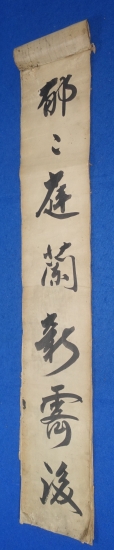 郁〻庭蘭新霽後